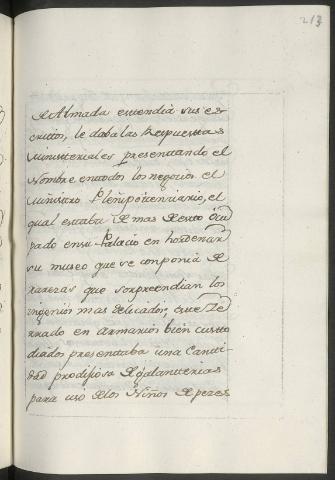 213
de Almada entendia sus es-
critos, le daba las Respuestas
Ministeriales presentando el
Nombre en todos los negocios el
Ministro Plenipotenciario, el
qual estaba de mas de esto Ocu
pado en su Palacio en hordenar
su museo que se conponia de
rarezas que sorprendian los
ingenios mas delicados;
rrado en Armarios bien custo
diados presentaba una Canti-
dad prodijiosa de galanterias
para uso de los Niños de peres